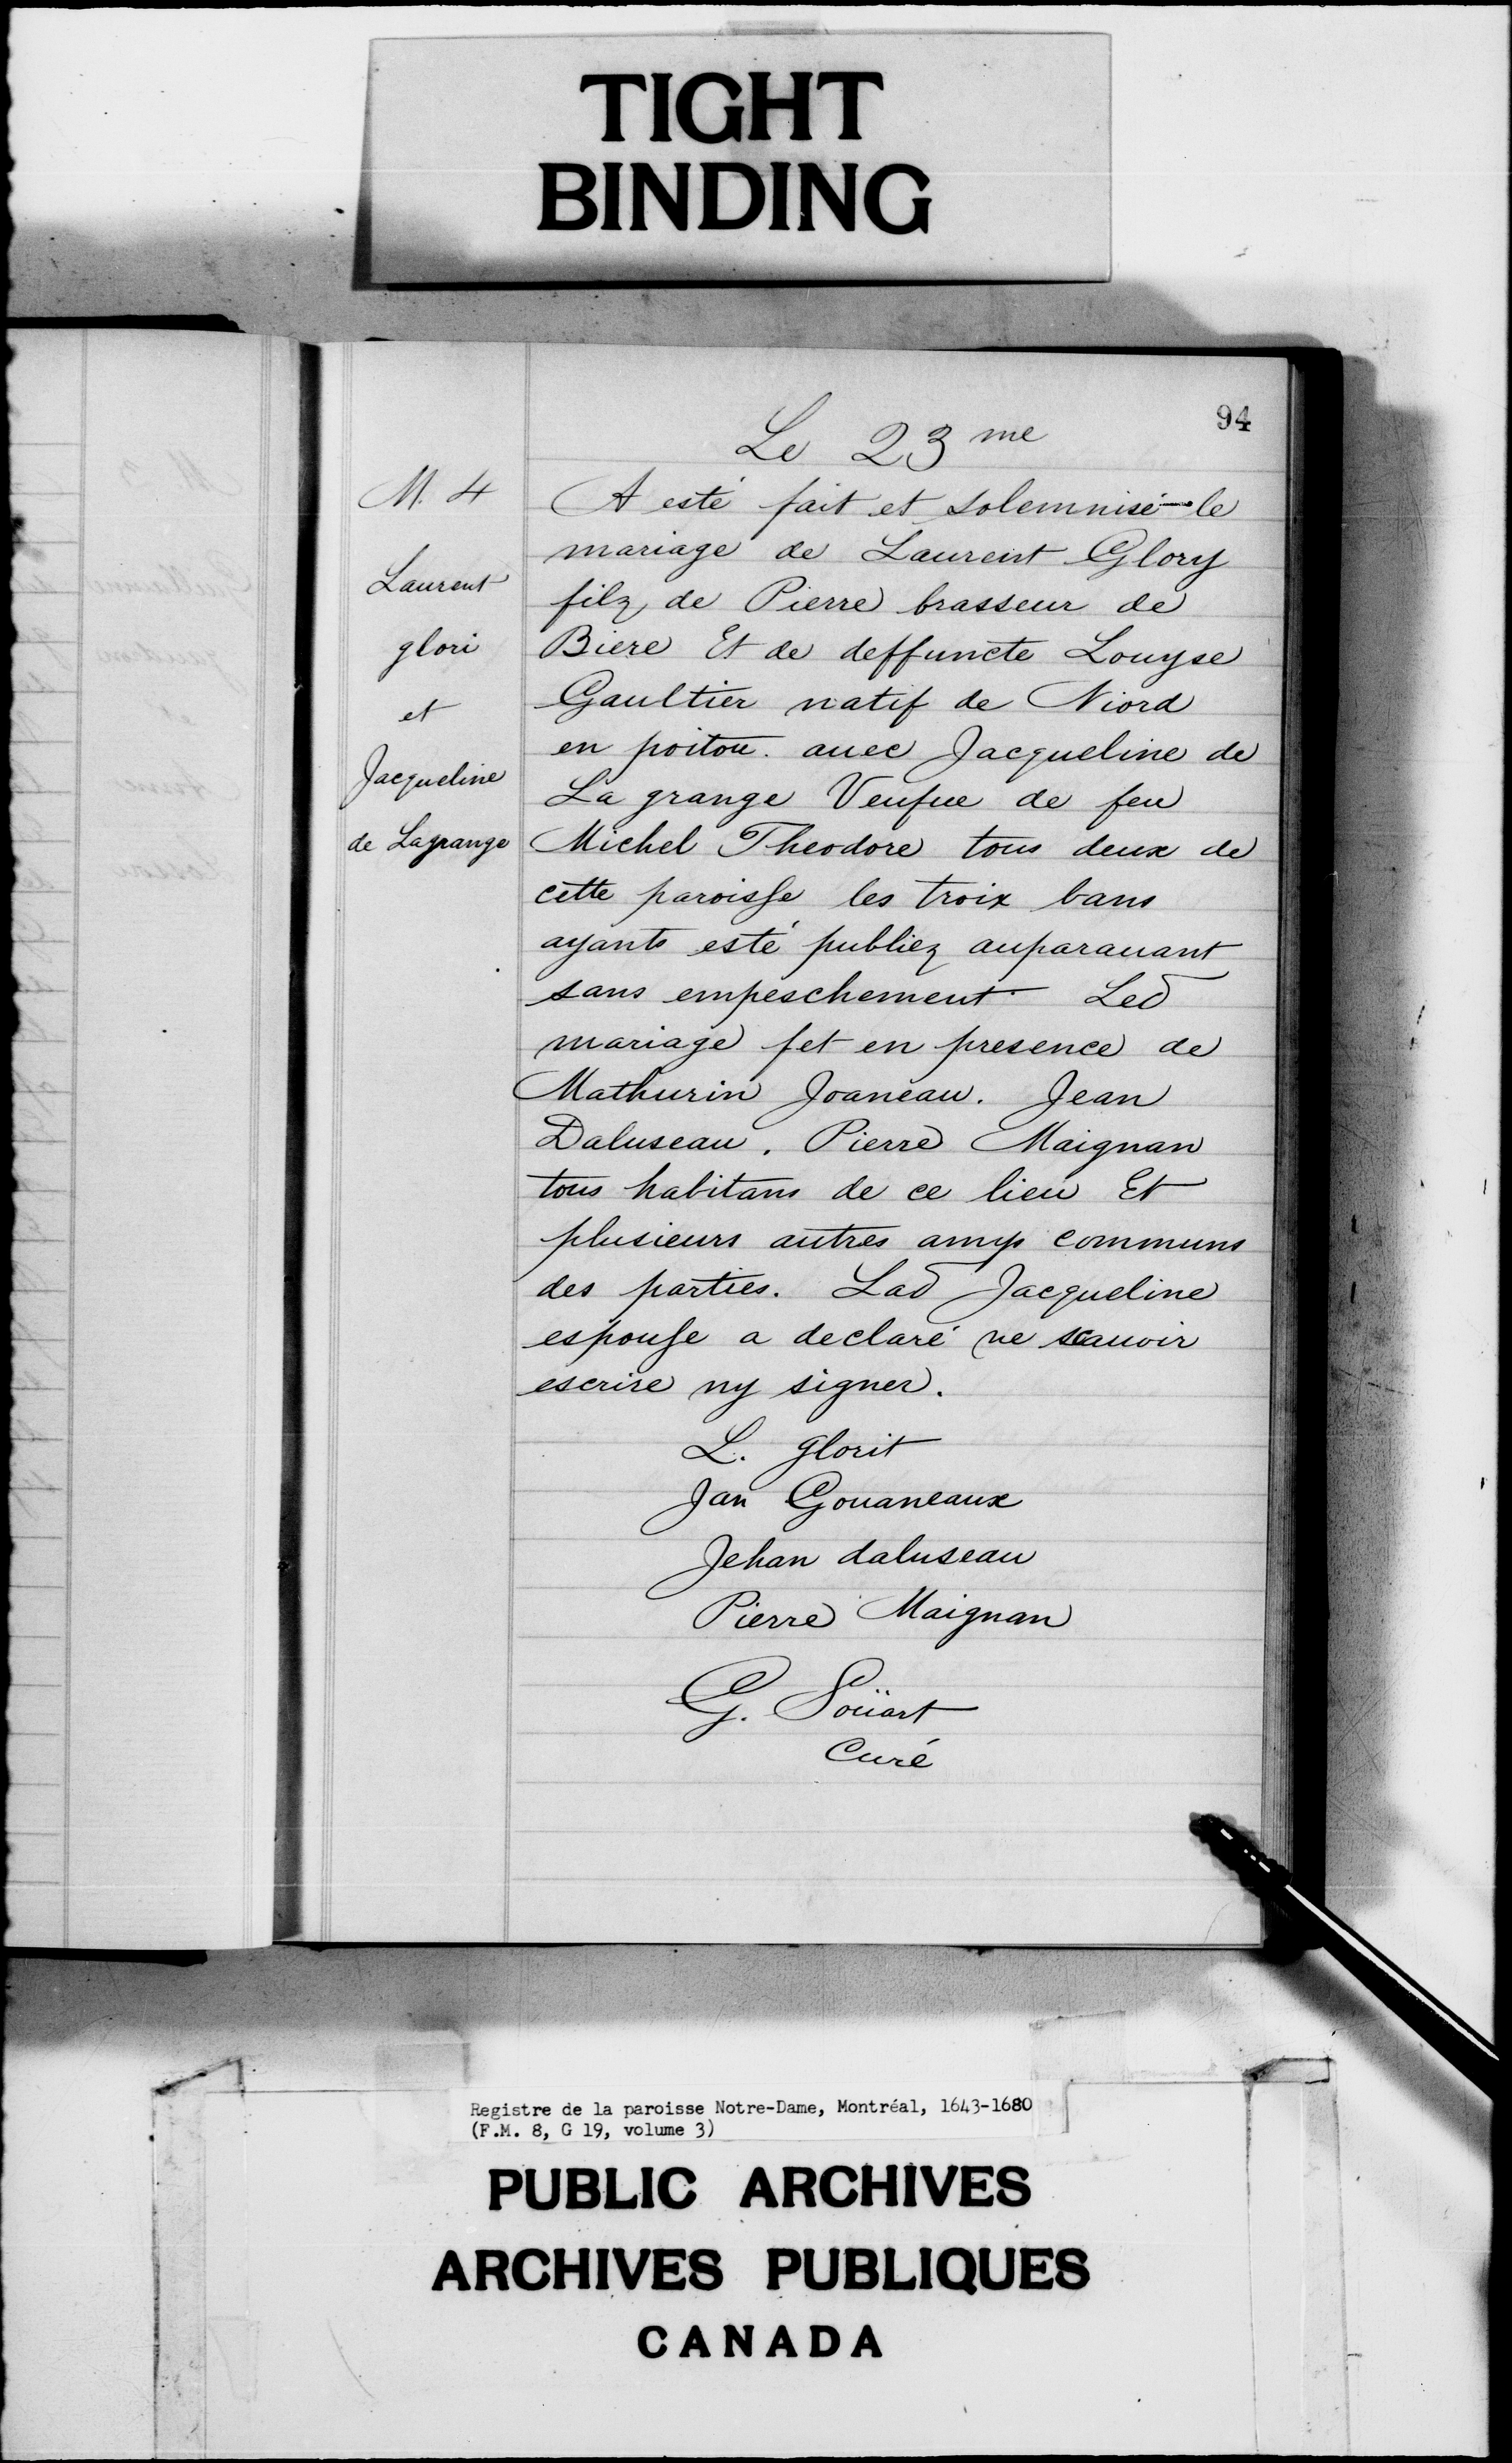 TIGHT
BINDING
94
Le 23 me
M. 4
Laurent
glori
et
Jacqueline
de Lagrange
A esté fait et solemnisé le
mariage de Laurent Glory
filz de Pierre brasseur de
Biere Et de deffuncte Louyse
Gaultier natif de Niord
en poitou. auec Jacqueline de
La grange Veufue de feu
Michel Theodore tous deux de
cette paroisse les troix bans
ayants esté publiez auparauant
sans empeschement Led
mariage fet en presence de
Mathurin Joaneau. Jean
Daluseau. Pierre Maignan
tous habitans de ce lieu Et
plusieurs autres amys communs
des parties. Lad Jacqueline
espouse a declaré ne scauoir
escrire ny signer.
L. glorit
Jan Gouaneaux
Jehan daluseau
Pierre Maignan
G. Soüart
Curé
Registre de la paroisse Notre-Dame, Montréal, 1643-1680
(F.M. 8, G 19, volume 3)
PUBLIC ARCHIVES
ARCHIVES PUBLIQUES
CANADA